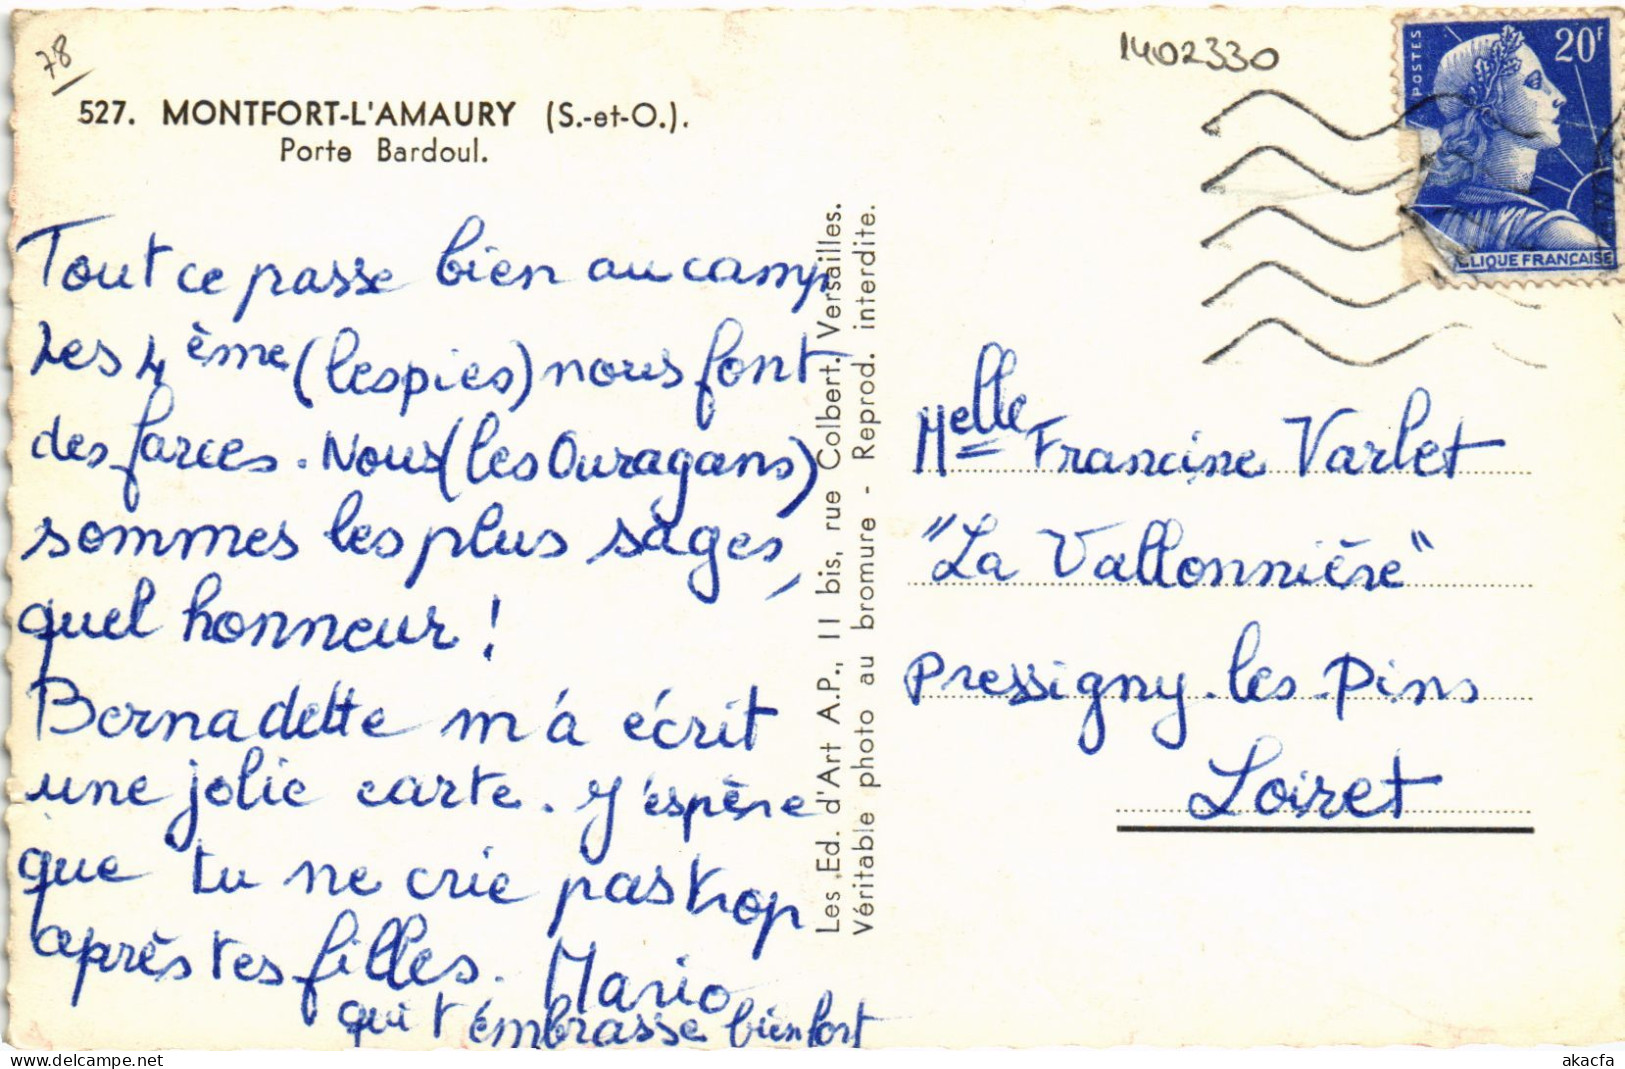 78
1402330
527. MONTFORT-L'AMAURY (S.-et-O.).
Porte Bardoul.
POSTES
20F
LIQUE FRANÇAISE
Tout ce passe bien au camp
Les 4ème (les pies) nous font
des farces. Nous (les Ouragans)
sommes les plus sages,
quel honneur !
Bernadette m'a écrit
une jolie carte. J'espère
que tu ne crie pas trop
après tes filles. Mario
qui t'embrasse bien fort
Les Ed. d'Art A.P., 11 bis, rue Colbert. Versailles.
Véritable photo au bromure - Reprod. interdite.
Melle Francine Varlet
"La Vallonnière"
Pressigny-les-Pins
Loiret
www.delcampe.net
akacfa